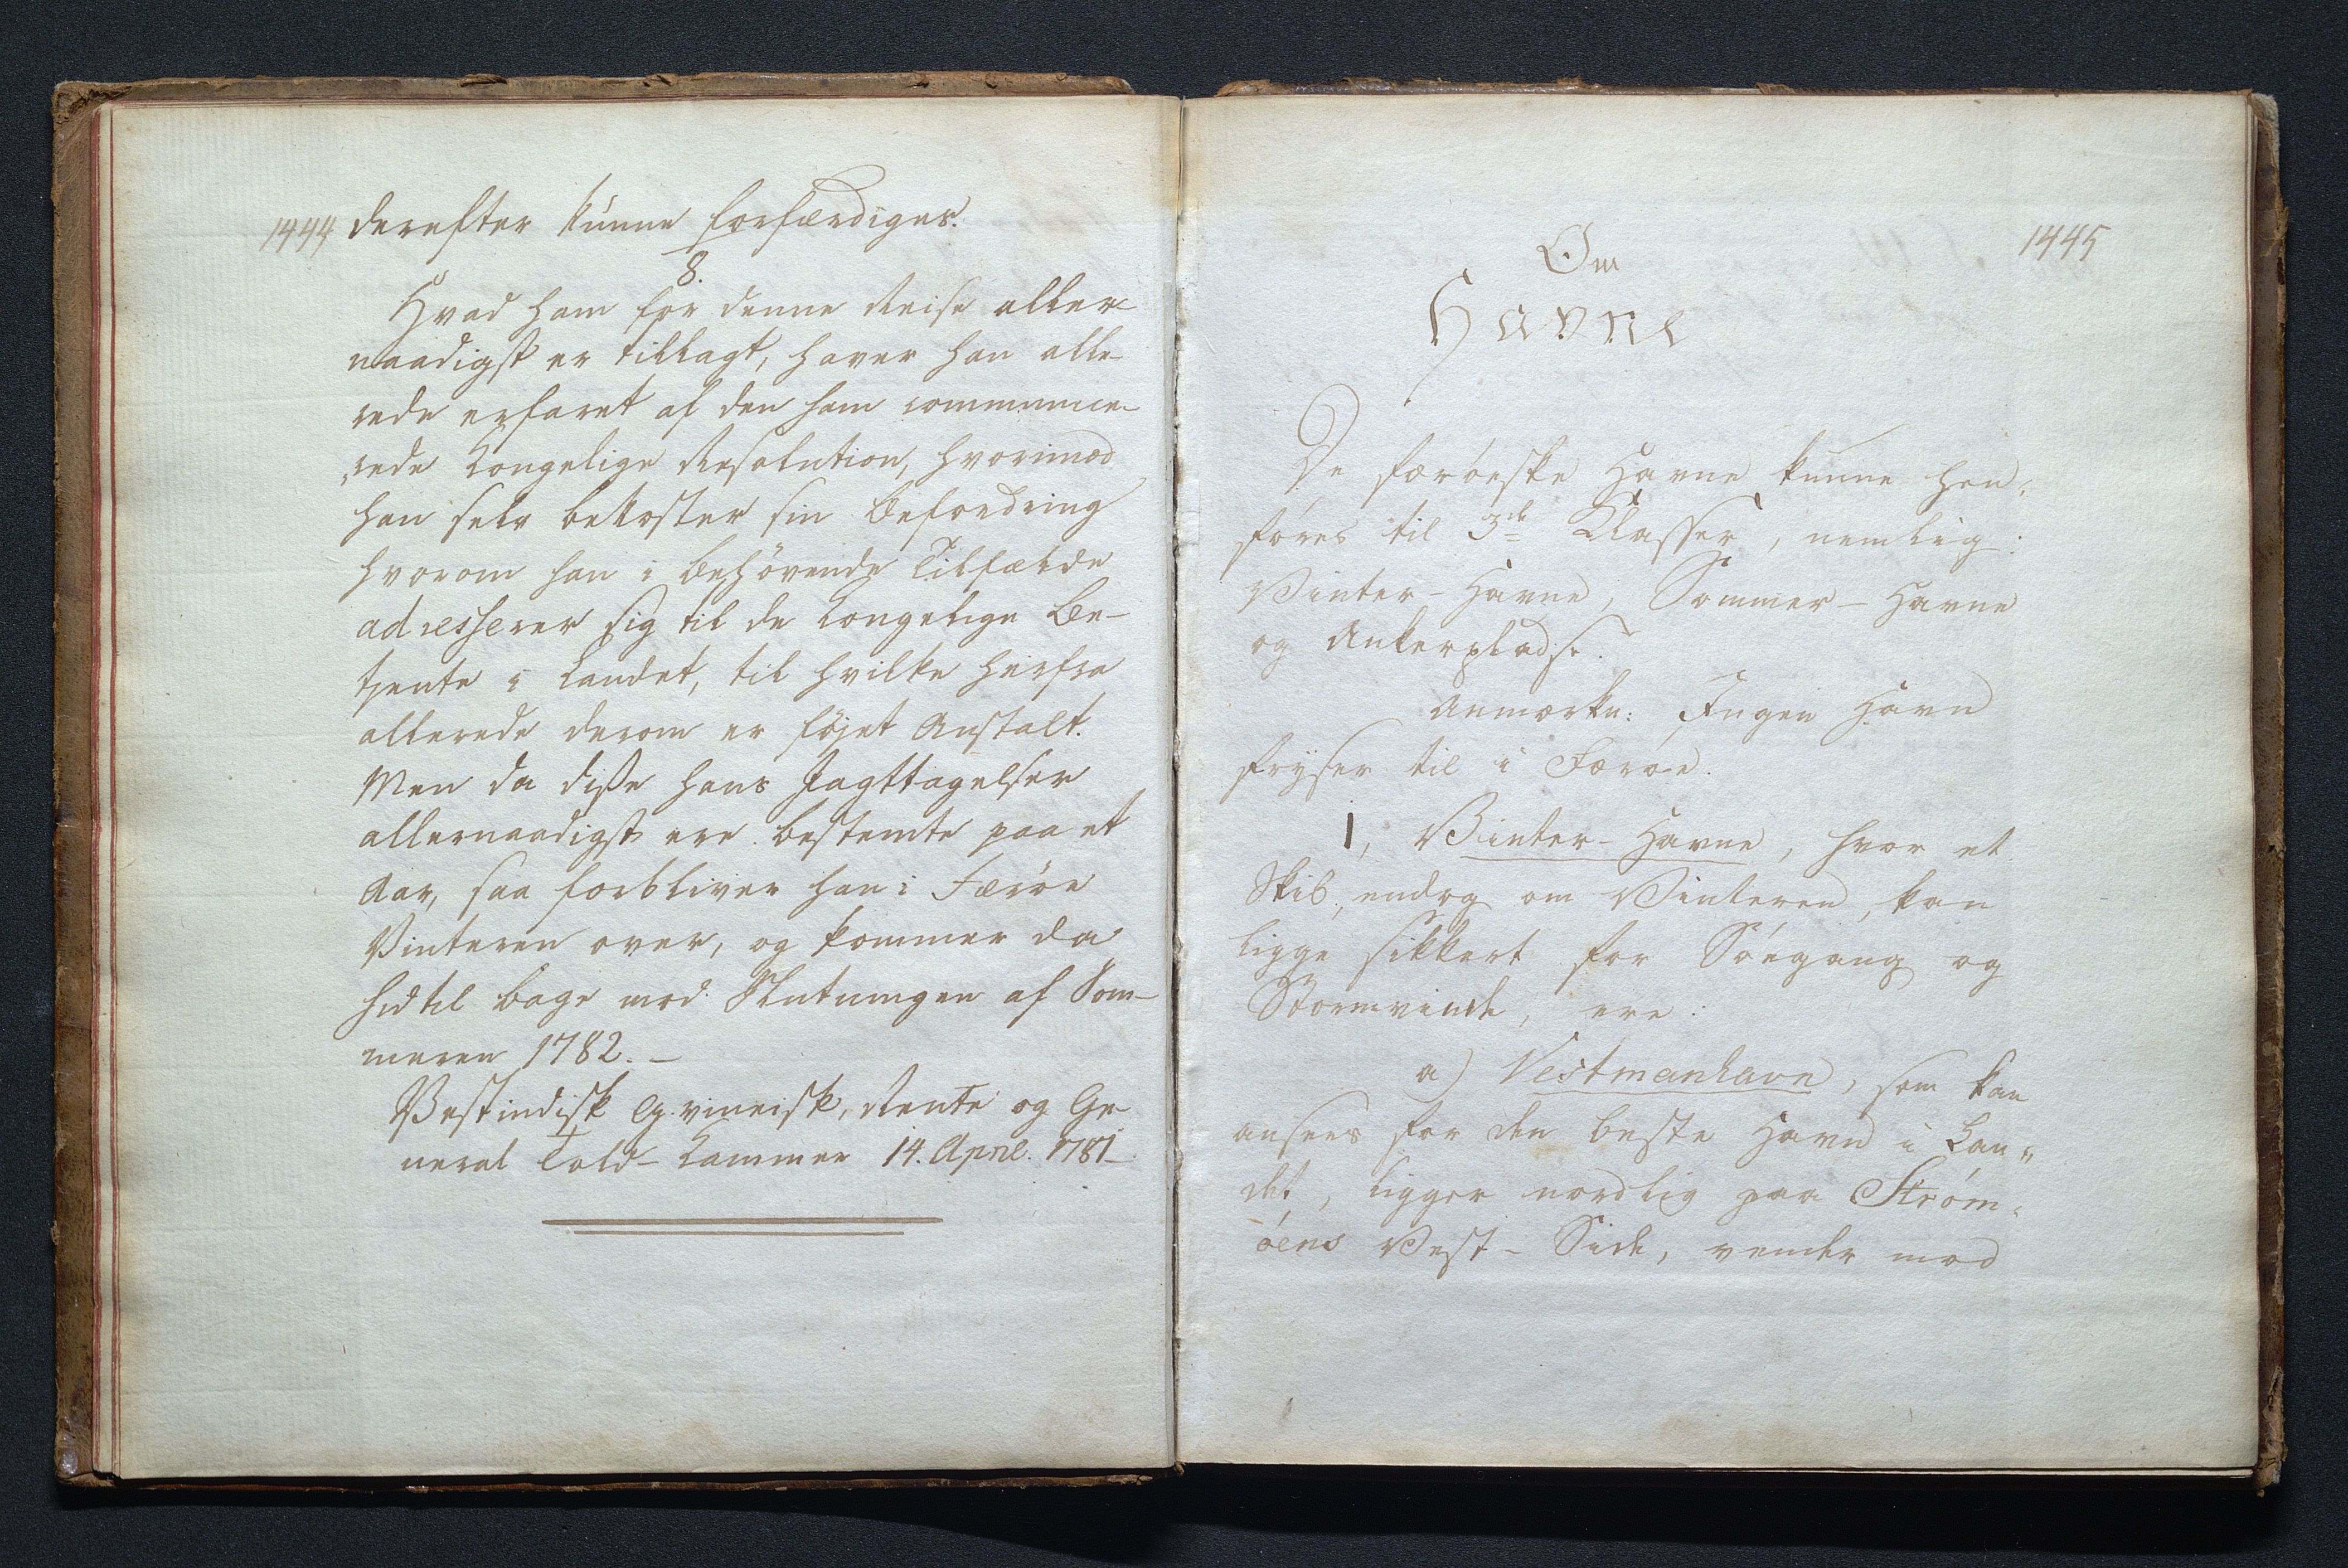 1444
derefter kunne forfærdiges.
8.
Hvad ham for denne Reise aller-
naadigst er tillagt, haver han alle-
rede erfaret af den ham communice-
rede Kongelige Resolution, hvorimod
han selv bekoster sin Befordring
hvorom han i behövende Tilfælde
adresserer sig til de Kongelige Be-
tjente i Landet, til hvilke herfra
allerede derom er föjet Anstalt.
Men da disse hans Jagttagelser
allernaadigst ere bestemte paa et
Aar, saa forbliver han i Færöe
Vinteren over, og kommer da
hid til bage mod Slutningen af Som-
meren 1782. —
Vestindisk Gvineisk, Rente og Ge-
neral Told-Kammer 14. April. 1781—
1445
Om
Havne
De færöeske Havne kunne hen-
föres til 3de Klasser, nemlig:
Vinter-Havne, Sommer-Havne
og Ankerpladse.
Anmærkn: Ingen Havn
fryser til i Færöe.
1, Vinter-Havne, hvor et
Skib, endog om Vinteren, kan
ligge sikkert for Söegang og
Stormvinde, ere:
a) Vestmanhavn, som kan
ansees for den beste Havn i Lan-
det, ligger nordlig paa Ström-
öens Vest-Side, vender mod